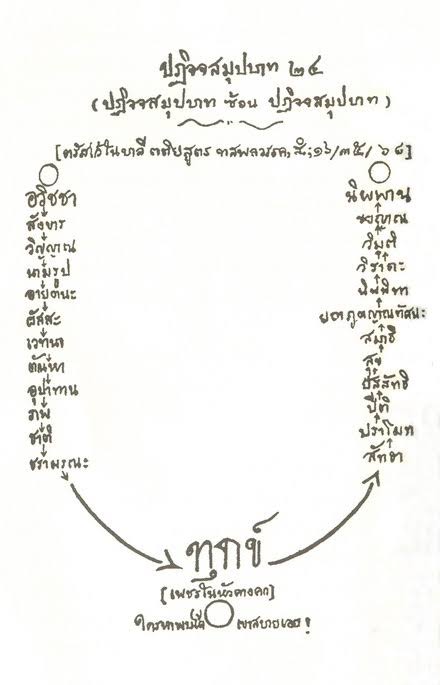 ปฏิจจสมุปบาท ๒๔
(ปฏิจจสมุปบาท ซ้อน ปฏิจจสมุปบาท)
[ตรัสไว้ในบาลี ตติยสูตร ทสพลวรค, สํ.;๑๖/๓๕/๖๘]
อวิชชา
สังขาร
วิญญาณ
นามรูป
อายตนะ
ผัสสะ
เวทนา
ตัณหา
อุปาทาน
ภพ
ชาติ
ชรามรณะ
นิพพาน
ขยญาณ
วิมุติ
วิราคะ
นิพพิทา
ยถาภูตญาณทัศนะ
สมาธิ
สุข
ปัสสัทธิ
ปีติ
ปราโมท
สัทธา
ทุกข์
[เพชรในหัวคางคก]
ใครหาพบได้ เขาสบายเอย!